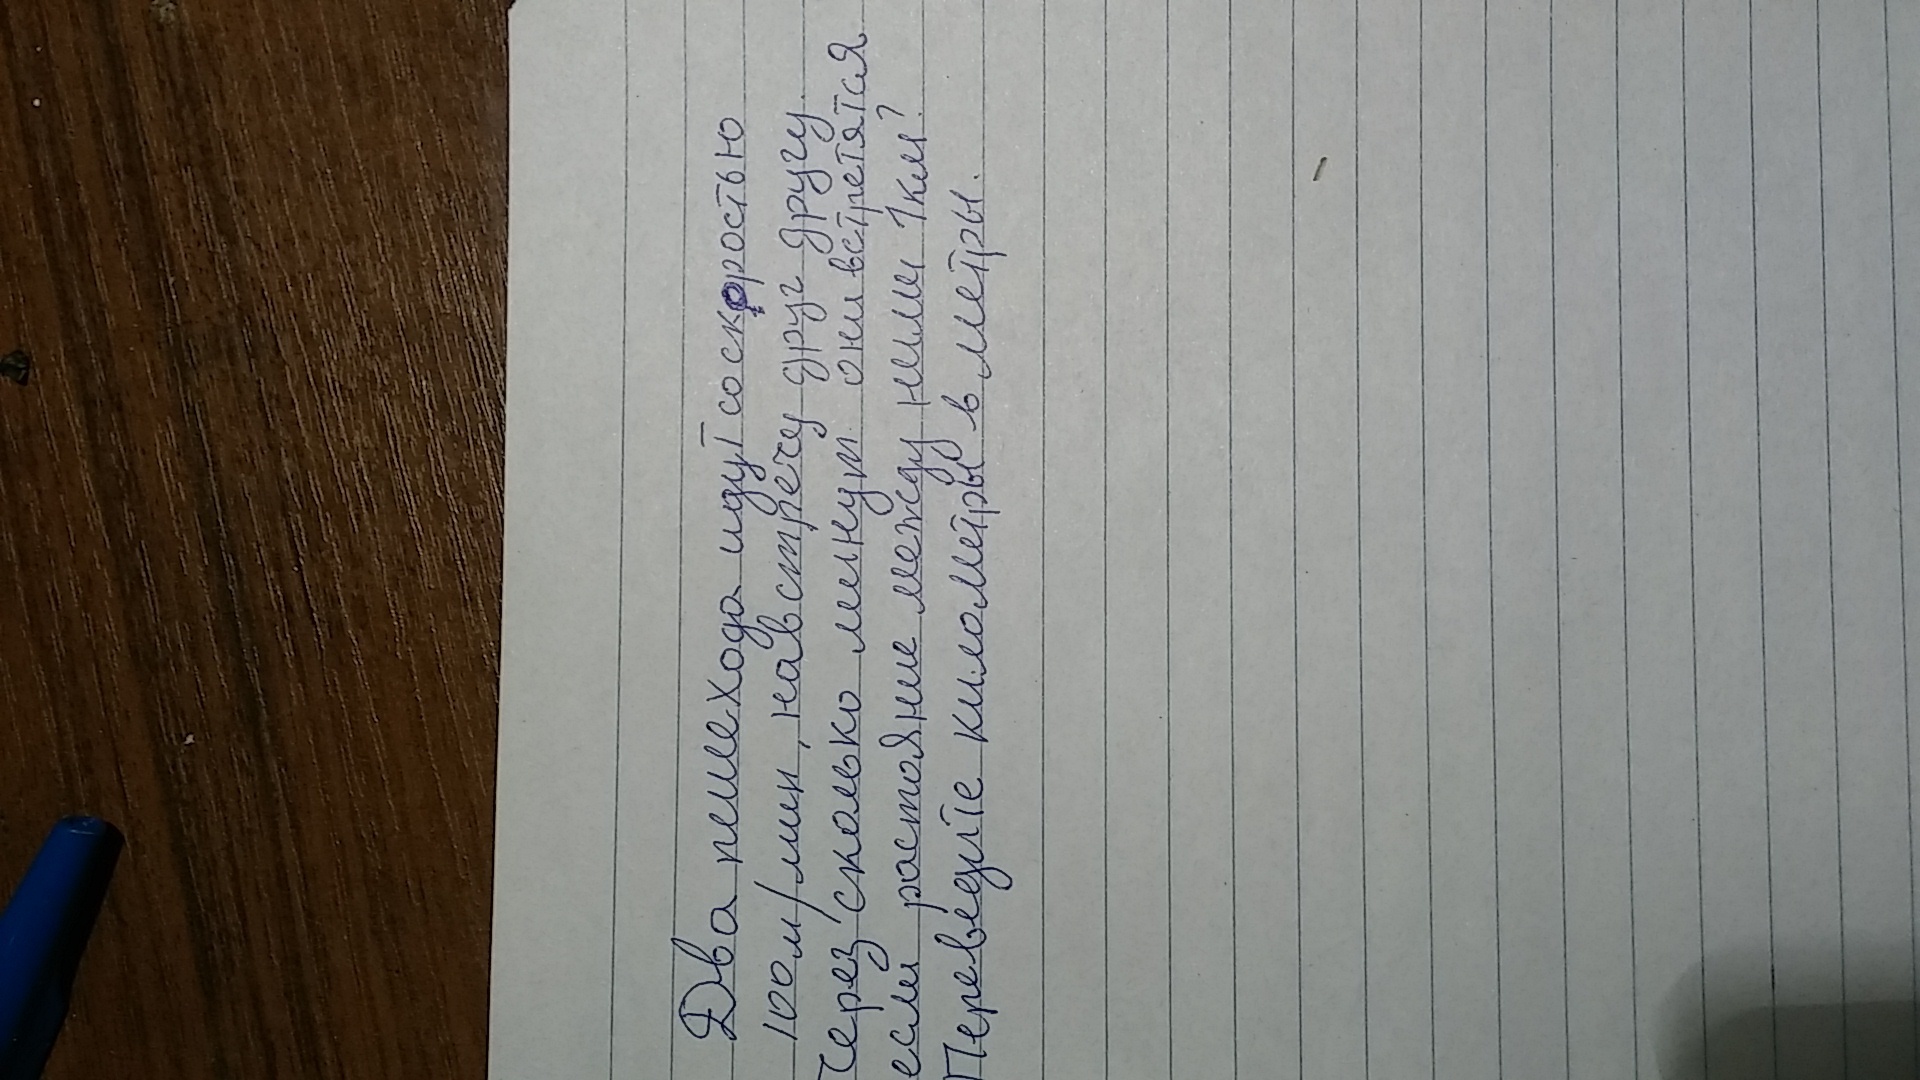 Два пешехода идут со скоростью
100м/мин, навстречу друг другу.
Через сколько минут они встретятся
если растояние между ними 1км?
Переведите километры в метры.